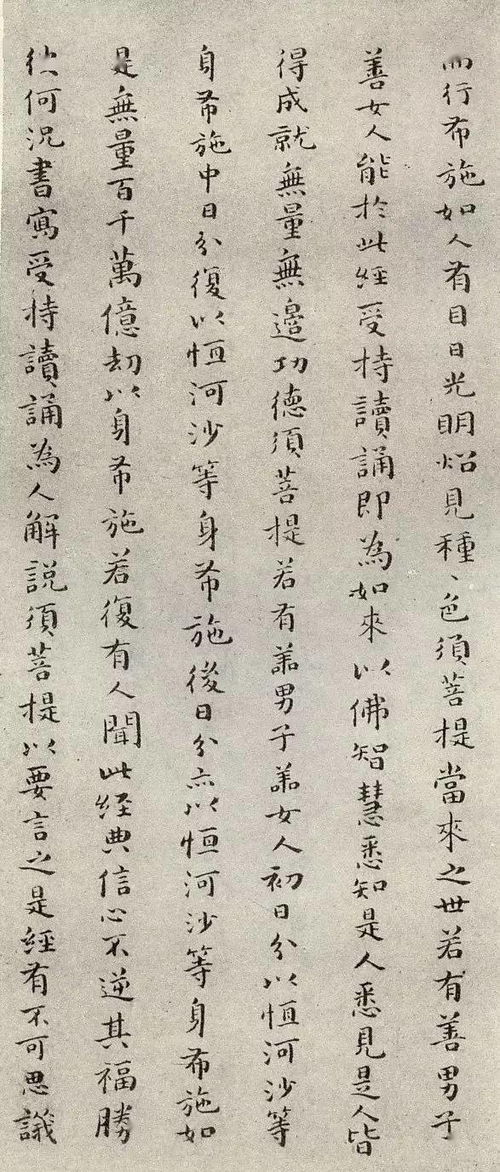 而行布施如人有目日光明炤見種、色須菩提當來之世若有善男子
善女人能於此經受持讀誦即為如來以佛智慧悉知是人悉見是人皆
得成就無量無邊功德須菩提若有善男子善女人初日分以恒河沙等
身布施中日分復以恒河沙等身布施後日分亦以恒河沙等身布施如
是無量百千萬億劫以身布施若復有人聞此經典信心不逆其福勝
彼何況書寫受持讀誦為人解説須菩提以要言之是經有不可思議